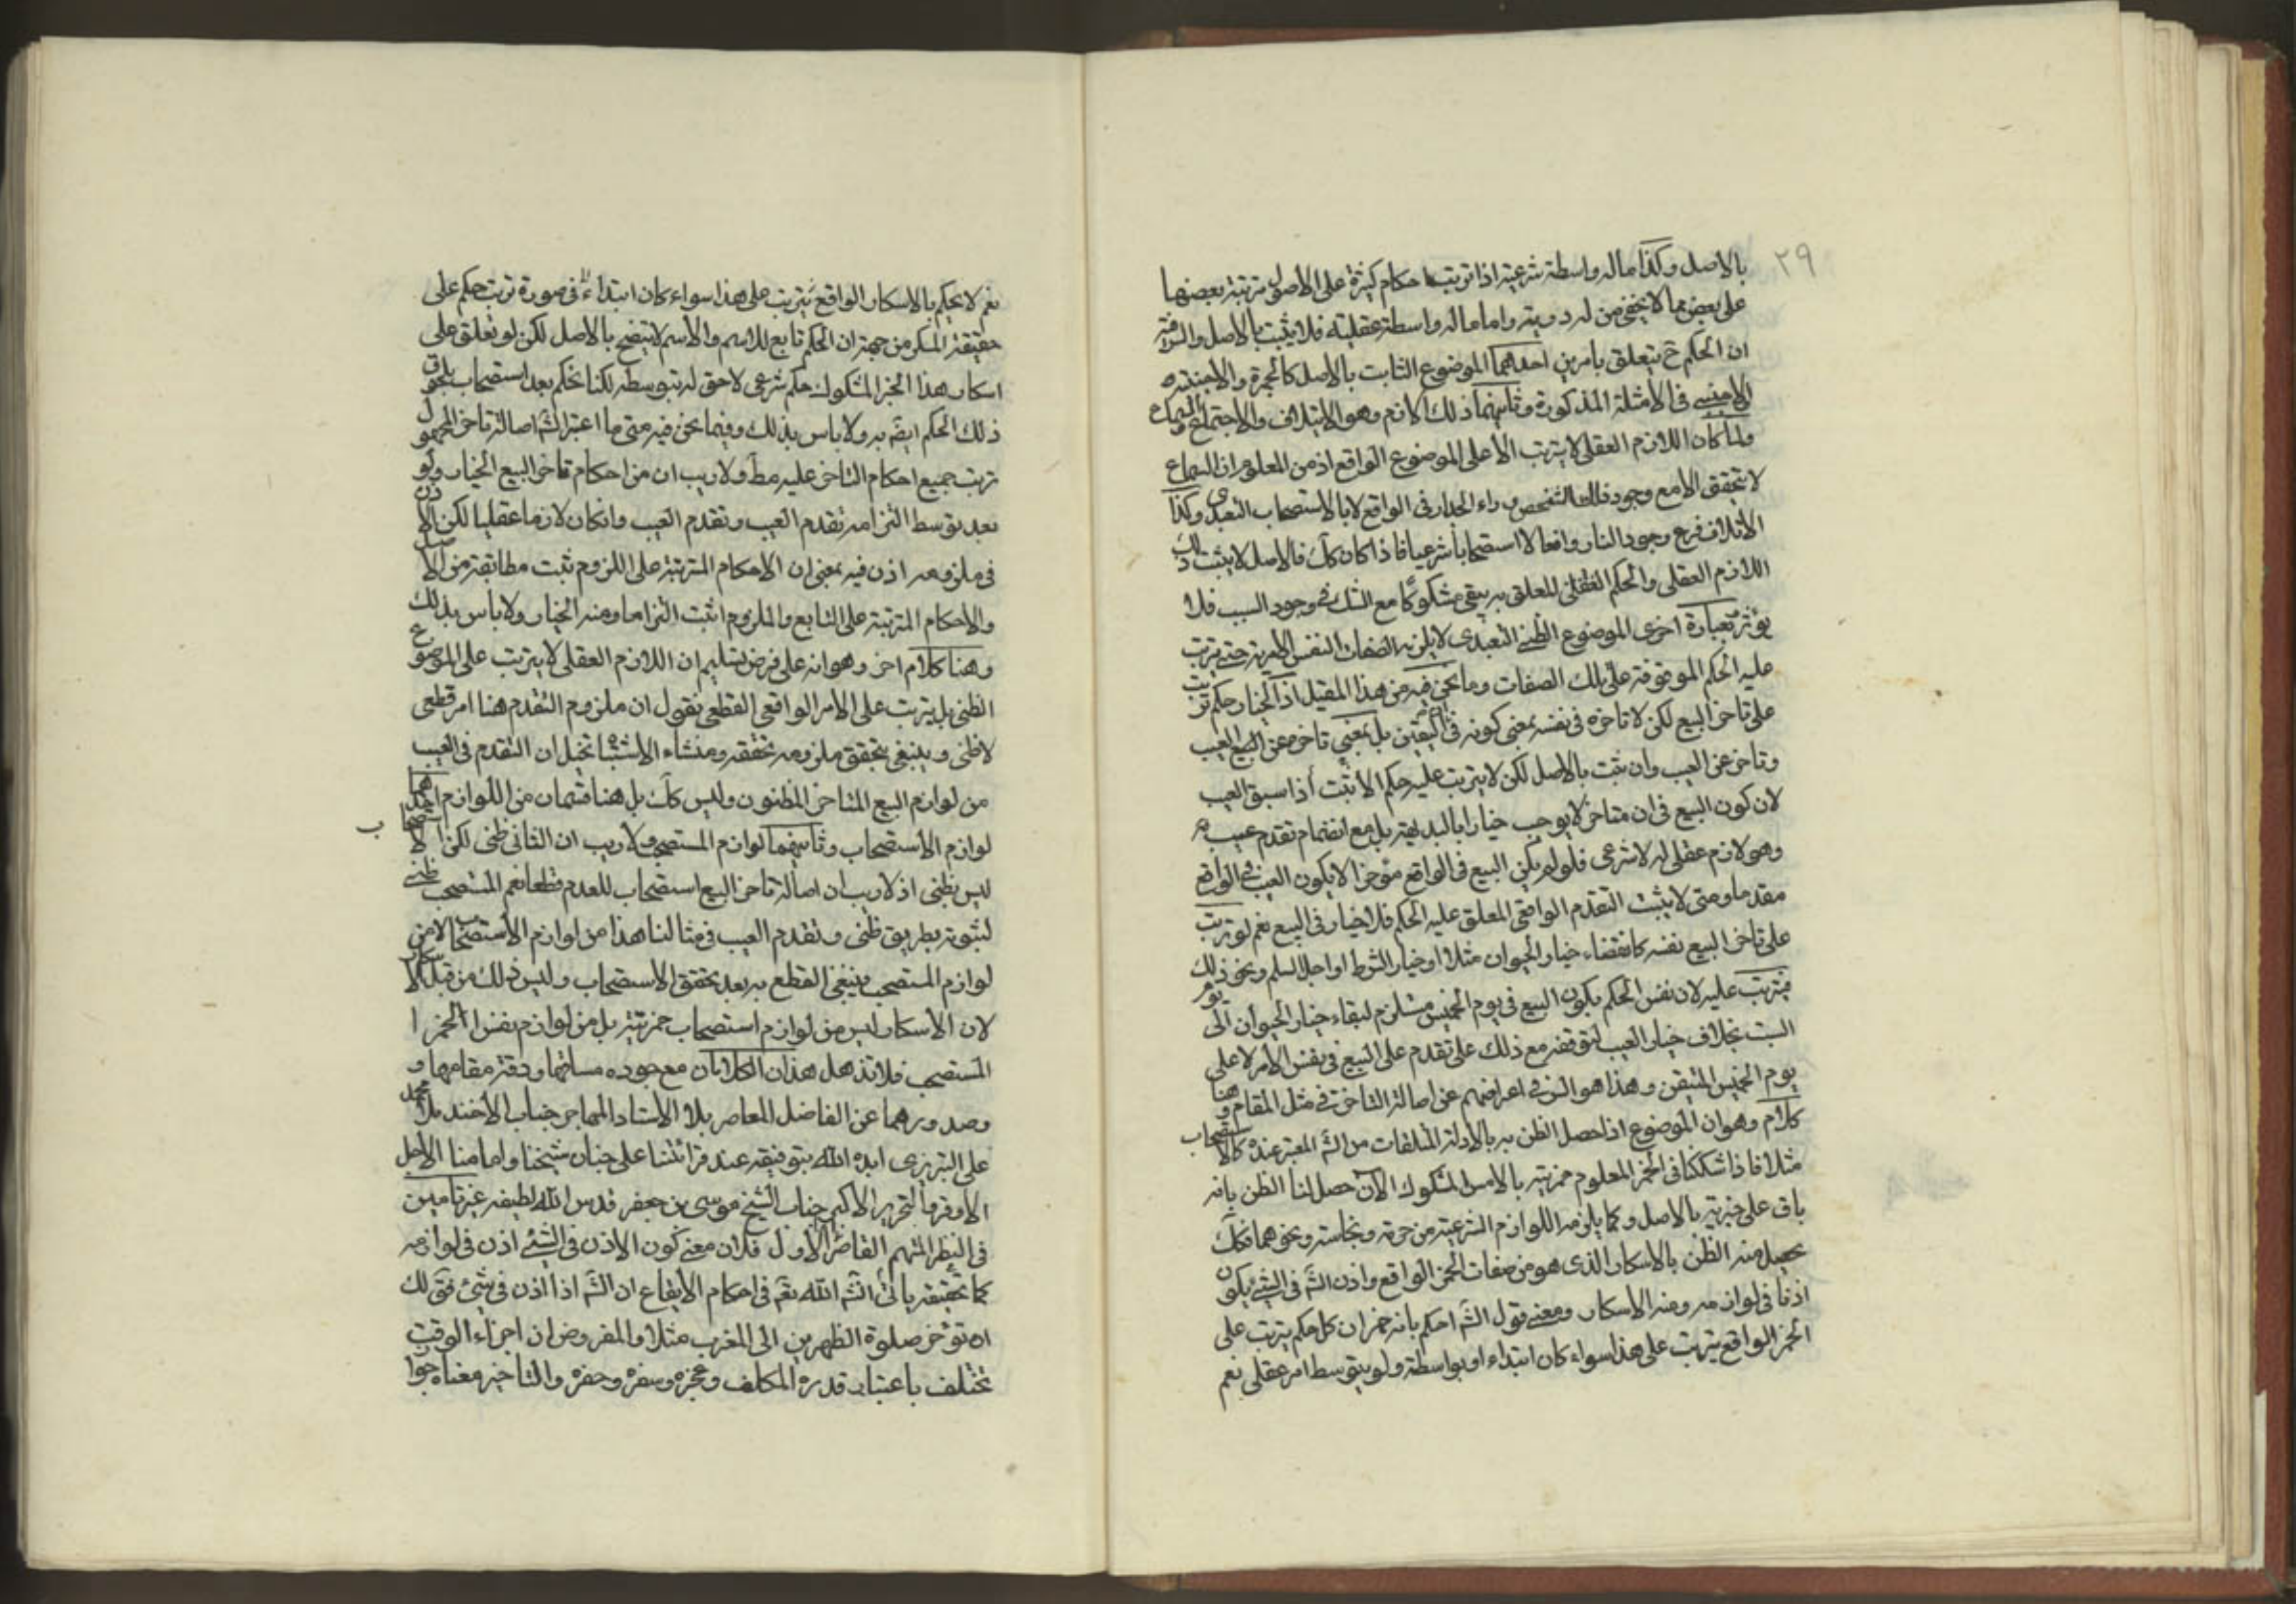 ٢٩
بالاصل وكذا ماله واسطة شرعية اذا ترتب احكام كثيرة على الاصول مترتبة بعضها
على بعض مما لا يخفى من له دربة واما ماله واسطة عقلية فلا يثبت بالاصل والسر فيه
ان الحكم ح يتعلق بامرين احدهما الموضوع الثابت بالاصل كالجمرة والاجنبية
الاجنبى فى الامثلة المذكورة وثانيهما ذلك اللازم وهو الاتلاف والاجتماع
ولما كان اللازم العقلى لا يترتب الا على الموضوع الواقع اذ من المعلوم ان السماع
لا يتحقق الا مع وجود الشخص وراء الجدار فى الواقع لا بالاستصحاب التعبدى وكذا
الاتلاف فرع وجود النار واقعا لا استصحابا شرعيا فاذا كان كك فالاصل لا يثبت ذلك
اللازم العقلى والحكم المعلق به يبقى مشكوكا مع الشك فى وجود السبب فلا
يؤثر وبعبارة اخرى الموضوع الظنى التعبدى لا يلزمه الصفات النفس الامرية حتى يترتب
عليه الحكم الموقوفة على تلك الصفات وما نحن فيه من هذا القبيل اذ الخيار حكم ترتب
على تاخر البيع لكن لا تاخره فى نفسه بمعنى كونه فى بل بمعنى تاخره عن العيب
وتاخر عن العيب وان ثبت بالاصل لكن لا يترتب عليه حكم الا ثبت اذا سبق العيب
لان كون البيع فى ان متاخر لا يوجب خيارا بالبديهة بل مع انضمام تقدم عيب
وهو لازم عقلى له لا شرعى فلو لم يكن البيع فى الواقع مؤخرا لا يكون العيب فى الواقع
مقدما ومتى لا يثبت التقدم الواقعى المعلق عليه الحكم فلا خيار فى البيع نعم لو ترتب
على تاخر البيع نفسه كانقضاء خيار الحيوان مثلا او خيار الشرط او اجل السلم ونحو ذلك
فيترتب عليه لان نفس الحكم بكون البيع فى يوم الخميس مستلزم لبقاء خيار الحيوان الى يوم
السبت بخلاف خيار العيب لتوقفه مع ذلك على تقدم على البيع فى نفس الامر لا على
يوم الخميس المتيقن وهذا هو السر فى اعراضهم عن اصالة التاخر فى مثل المقام وهنا
كلام وهو ان الموضوع اذا حصل الظن به بالادلة من الش المعتبر عنده كالاستصحاب
مثلا فاذا شككنا فى الخمر المعلوم خمريته بالامس المشكوك الآن حصل لنا الظن بانه
باق على خمريته بالاصل وكما يلزمه اللوازم الشرعية من حرمة ونجاسة ونحوهما فكك
يحصل منه الظن بالاسكار الذى هو من صفات الخمر الواقع واذن الش فى الشئ يكون
اذنا فى لوازمه ومنه الاسكار ومعنى قول الش احكم بانه خمر ان كل حكم يترتب على
الخمر الواقع يترتب على هذا سواء كان ابتداء او بواسطة ولو بتوسط امر عقلى نعم
نعم لا يحكم بالاسكار الواقع يترتب على هذا سواء كان ابتداء فى صورة ترتب حكم على
حقيقة المسكر من جهة ان الحكم تابع للاسم والاسم لا يتضح بالاصل لكن لو تعلق على
اسكار هذا الخمر المشكوك حكم شرعى لاحق له بتوسطه لكنا نحكم بعد استصحاب بلحوق
ذلك الحكم ايضا به ولا باس بذلك وفيما نحن فيه متى ما اعتبر الش اصالة تاخر المجهول
ترتب جميع احكام التاخر عليه مط ولا ريب ان من احكام تاخر البيع الخيار ولو
بعد توسط التزامه تقدم العيب وتقدم العيب وانكان لازما عقليا لكن الاذن
فى ملزومه اذن فيه بمعنى ان الاحكام المترتبة على اللزوم تثبت مطابقة من الاصل
والاحكام المترتبة على التابع والملزوم اثبت التزاما ومنه الخيار ولا باس بذلك
وهنا كلام اخر وهو انه على فرض تسليم ان اللازم العقلى لا يترتب على الموضوع
الظنى بل يترتب على الامر الواقعى القطعى نقول ان ملزوم التقدم هنا امر قطعى
لا ظنى وينبغى بتحقق ملزومه تحققه ومنشاء الاشتباه تخيل ان التقدم فى العيب
من لوازم البيع المتاخر المظنون وليس كك بل هنا قسمان من اللوازم احدهما
لوازم الاستصحاب وثانيهما لوازم المستصحب ولا ريب ان الثانى ظنى لكن الاستصحاب
ليس بظنى اذ لا ريب ان اصالة تاخر البيع استصحاب للعدم قطعا نعم المستصحب ظنى
لثبوته بطريق ظنى وتقدم العيب فى مثالنا هذا من لوازم الاستصحاب لا من
لوازم المستصحب فينبغى القطع به بعد تحقق الاستصحاب وليس ذلك من قبيل الاسكار
لان الاسكار ليس من لوازم استصحاب خمريته بل من لوازم نفس الخمر ا
المستصحب فلا تذهل هذان الكلامان مع جوده مسائتهما ودقة مقامهما و
وصدورهما عن الفاضل المعاصر بلا الاستاد المهاجر جناب الاخند ملا محمد
على التبريزى ايده الله بتوفيقه عند قرائتنا على جناب شيخنا وامامنا الاجل
الاوفر والتحرير الاكبر جناب الشيخ موسى بن جعفر قدس الله لطيفه غير تامين
فى النظر المتهم القاصر الاول فلان معنى كون الاذن فى الشئ اذن فى لوازمه
كما تحقيقه ياتى انش الله تع فى احكام الايقاع ان الش اذا اذن فى شئ فتى لك
ان تؤخر صلوة الظهرين الى المغرب مثلا والمفروض ان اجزاء الوقت
تختلف باعتبار قدره المكلف وعجزه وسفره وحضره والتاخير معناه جواز